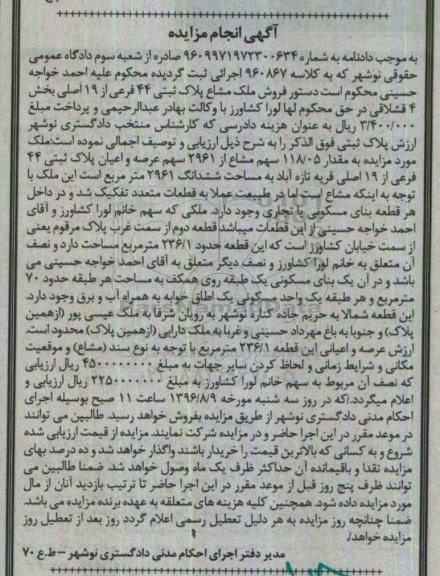 آگهی انجام مزایده
به موجب دادنامه به شماره ۹۶۰۹۹۷۱۹۷۲۳۰۰۶۳۴ صادره از شعبه سوم دادگاه عمومی
حقوقی نوشهر که به کلاسه ۹۶۰۸۶۷ اجرائی ثبت گردیده محکوم علیه احمد خواجه
حسینی محکوم است دستور فروش ملک مشاع پلاک ثبتی ۴۴ فرعی از ۱۹ اصلی بخش
۴ قشلاقی در حق محکوم لها لورا کشاورز با وکالت بهادر عبدالرحیمی و پرداخت مبلغ
۳/۴۰۰/۰۰۰ ریال به عنوان هزینه دادرسی که کارشناس منتخب دادگستری نوشهر
ارزش پلاک ثبتی فوق الذکر را به شرح ذیل ارزیابی و توصیف اجمالی نموده است:ملک
مورد مزایده به مقدار ۱۱۸/۰۵ سهم مشاع از ۲۹۶۱ سهم عرصه و اعیان پلاک ثبتی ۴۴
فرعی از ۱۹ اصلی قریه تازه آباد به مساحت ششدانگ ۲۹۶۱ متر مربع است این ملک با
توجه به اینکه مشاع است اما در طبیعت عملا به قطعات متعدد تفکیک شد و در داخل
هر قطعه بنای مسکونی یا تجاری وجود دارد. ملکی که سهم خانم لورا کشاورز و آقای
احمد خواجه حسینی از این قطعات میباشد قطعه دوم از سمت غرب پلاک مرقوم یعنی
از سمت خیابان کشاورز است که این قطعه حدود ۲۳۶/۱ مترمربع مساحت دارد و نصف
آن متعلق به خانم لورا کشاورز و نصف دیگر متعلق به آقای احمد خواجه حسینی می
باشد و در آن یک بنای مسکونی یک طبقه روی همکف به مساحت هر طبقه حدود ۷۰
مترمربع و هر طبقه یک واحد مسکونی یک اطاق خوابه به همراه آب و برق وجود دارد.
این قطعه شمالا به حریم جاده کناره نوشهر به رویان شرقا به ملک عیسی پور (ازهمین
پلاک) و جنوبا به باغ مهرداد حسینی و غربا به ملک دارابی (ازهمین پلاک) محدود است.
ارزش عرصه و اعیانی این قطعه ۲۳۶/۱ مترمربع با توجه به نوع سند (مشاع) و موقعیت
مکانی و شرایط زمانی و لحاظ کردن سایر جهات به مبلغ ۴۵۰۰۰۰۰۰۰۰ ریال ارزیابی
که نصف آن مربوط به سهم خانم لورا کشاورز به مبلغ ۲۲۵۰۰۰۰۰۰۰ ریال ارزیابی و
اعلام میگردد.که در روز سه شنبه مورخه ۱۳۹۶/۸/۹ ساعت ۱۱ صبح بوسیله اجرای
احکام مدنی دادگستری نوشهر از طریق مزایده بفروش خواهد رسید. طالبین می توانند
در موعد مقرر در این اجرا حاضر و در مزایده شرکت نمایند. مزایده از قیمت ارزیابی شده
شروع و به کسانی که بالاترین قیمت را خریدار باشند واگذار خواهد شد و ده درصد بهای
مزایده نقدا و باقیمانده آن حداکثر ظرف یک ماه وصول خواهد شد. ضمنا طالبین می
توانند ظرف پنج روز قبل از موعد مقرر در این اجرا حاضر تا ترتیب بازدید آنان از مال
مورد مزایده داده شود. همچنین کلیه هزینه های متعلقه به عهده برنده مزایده می باشد.
ضمنا چنانچه روز مزایده به هر دلیل تعطیل رسمی اعلام گردد روز بعد از تعطیل روز
مزایده خواهد/.
مدیر دفتر اجرای احکام مدنی دادگستری نوشهر –ط.ع ۷۰